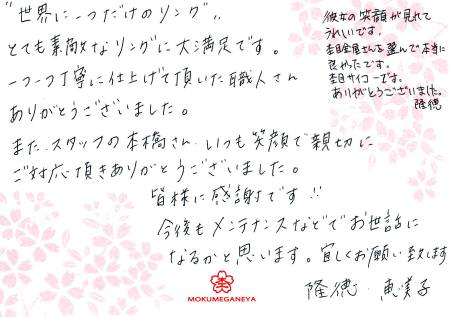 "世界に一つだけのリング"
とても素敵なリングに大満足です。
一つ一つ丁寧に仕上げて頂いた職人さん
ありがとうございました。
また、スタッフの本橋さん、いつも笑顔で親切に
ご対応頂きありがとうございました。
皆様に感謝です!!
今後もメンテナンスなどでお世話に
なるかと思います。宜しくお願い致します
隆徳 恵美子
彼女の笑顔が見れて
うれしいです。
杢目金屋さんを選んで本当に
良かったです。
杢目サイコーです。
ありがとうございました。
隆徳
MOKUMEGANEYA